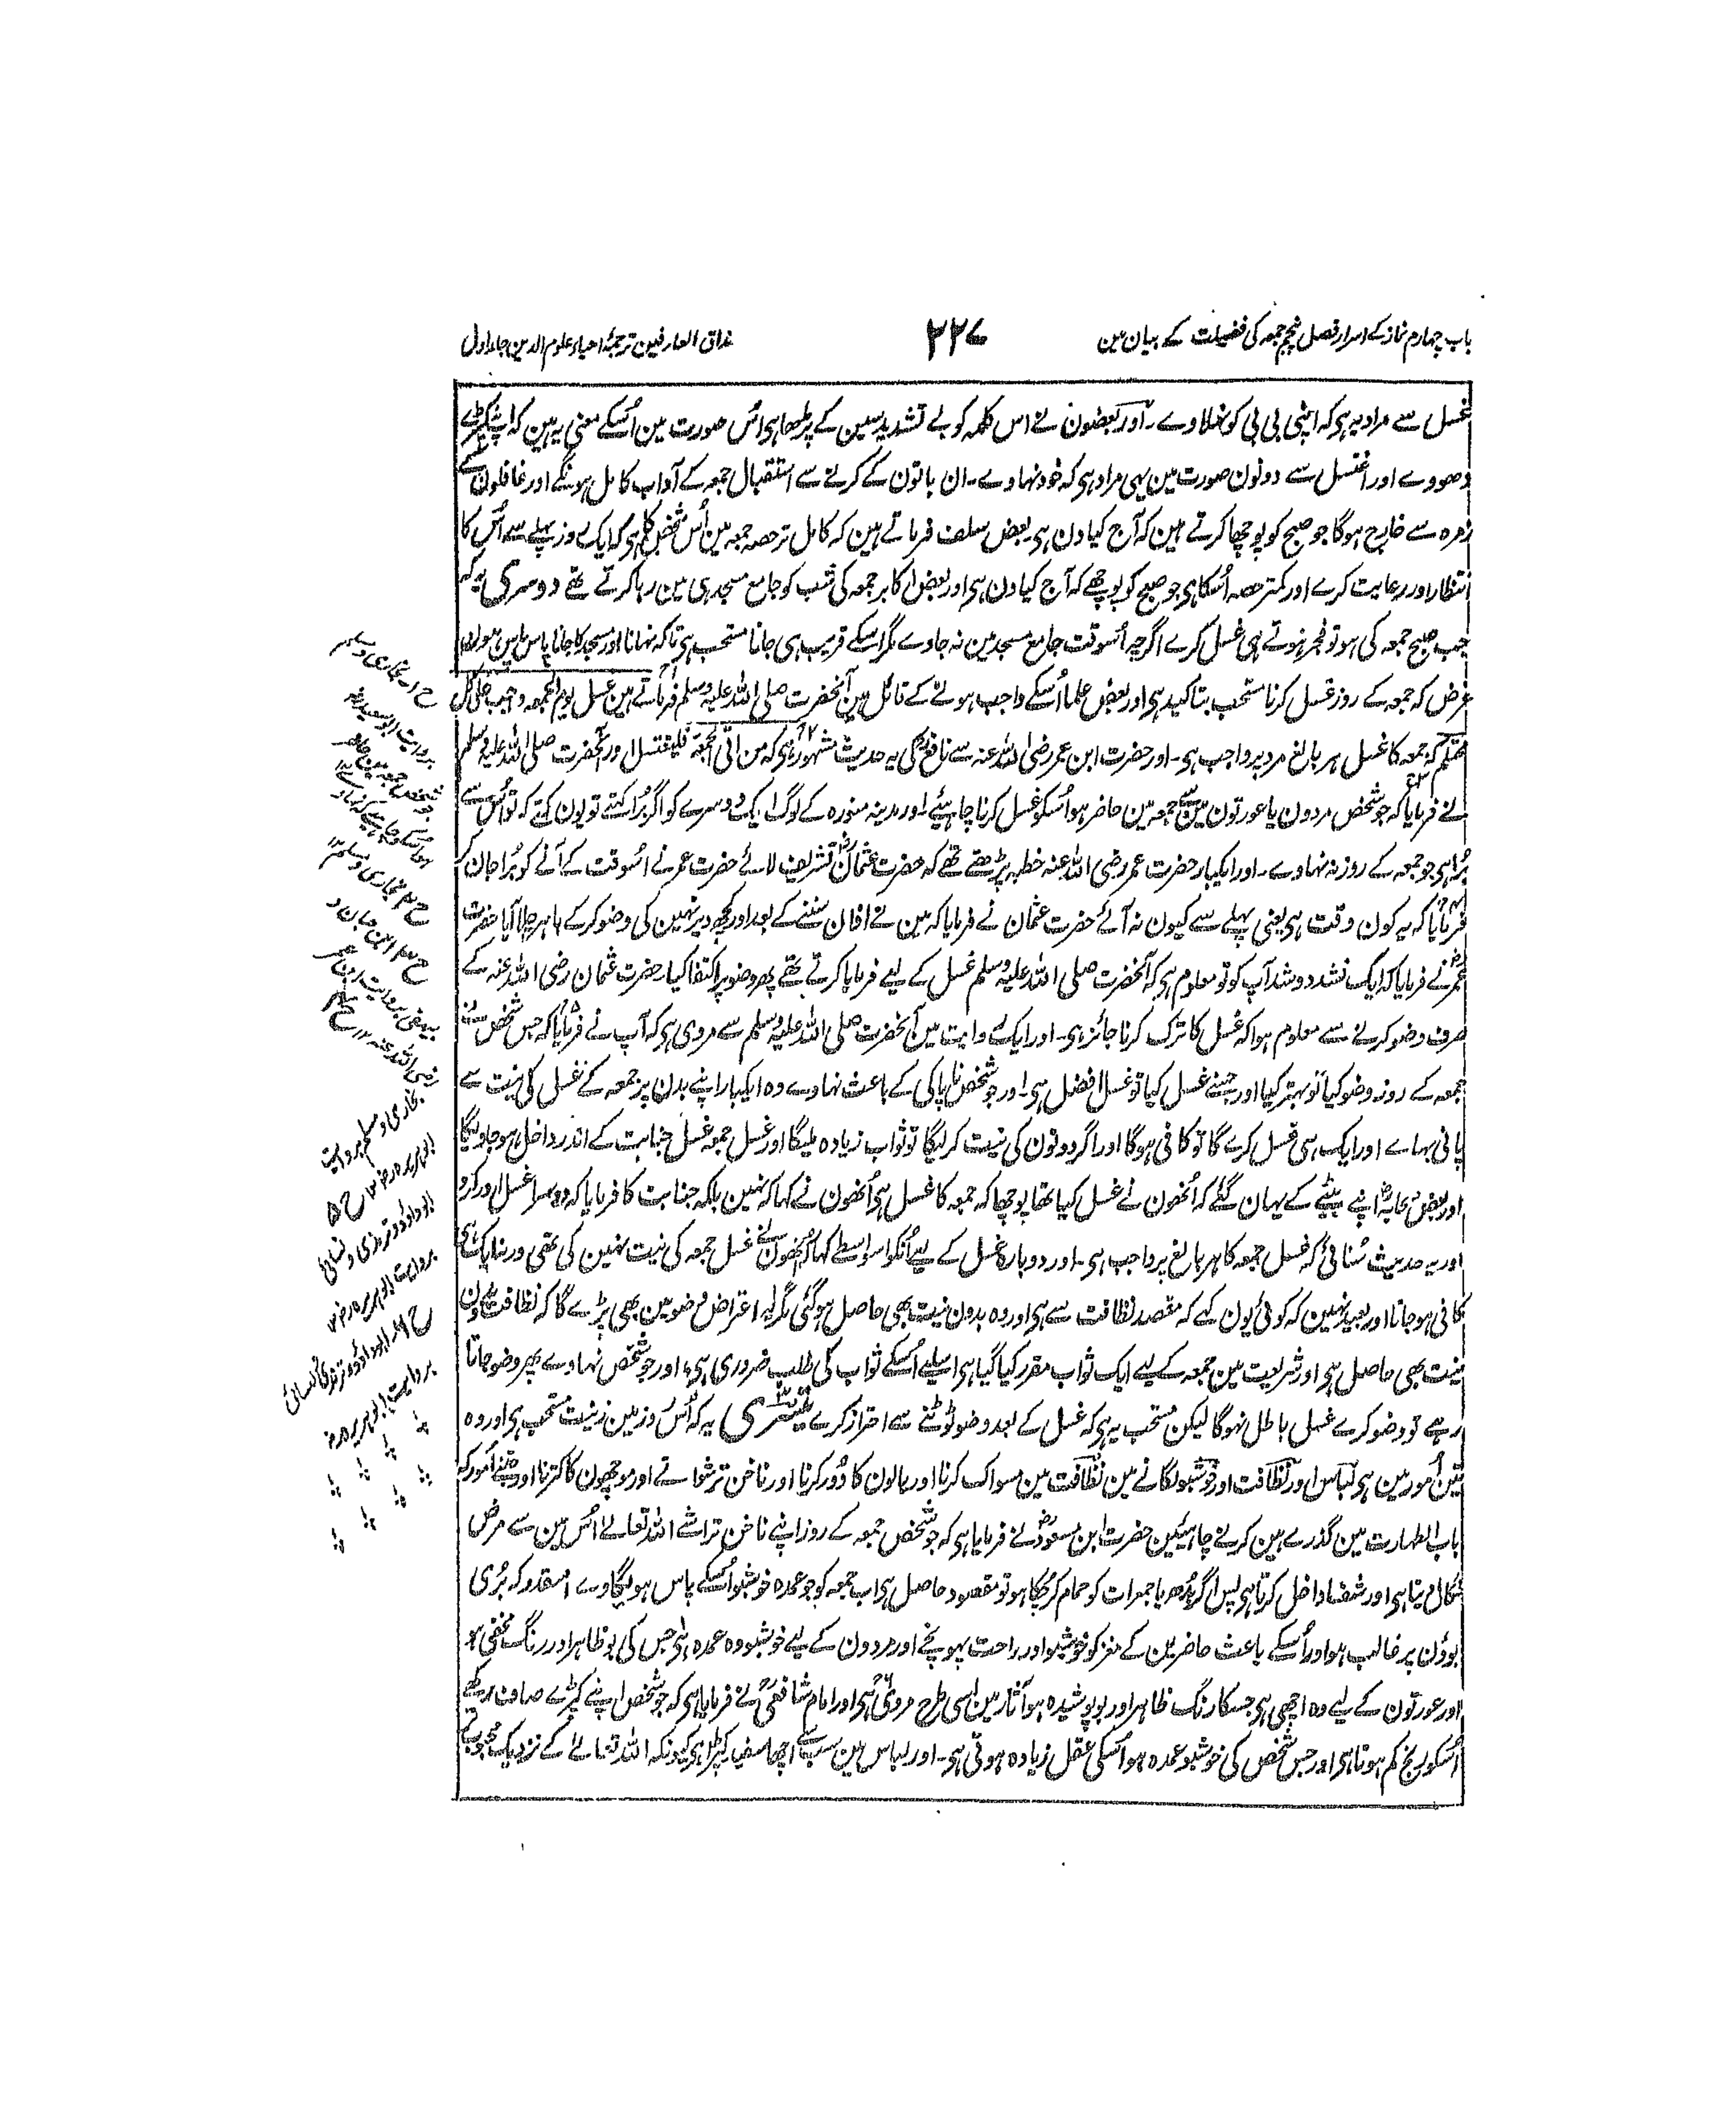 باب چہارم نماز کے اسرار فصل پنجم جمعہ کی فضیلت کے بیان مین
۲۲۷
مذاق العارفین ترجمۂ احیاء علوم الدین جلد اول
غسل سے مراد یہ ہی کہ اپنی بی بی کو نہلاوے ۔ اور بعضون نے اس کلمہ کو بے تشدید سین کے پڑھا ہی اس صورت مین اُسکے معنی یہ ہین کہ اپنے کپڑے
دھووے اور اغتسل سے دونون صورت مین یہی مراد ہی کہ خود نہاوے ۔ ان باتون کے کرنے سے استقبال جمعہ کے آداب کامل ہونگے اور غافلون کے
زمرہ سے خارج ہوگا جو صبح کو پوچھا کرتے ہین کہ آج کیا دن ہی بعض سلف فرماتے ہین کہ کامل تر حصہ جمعہ مین اُس شخص کا ہی کہ ایک روز پہلے سے اُس کا
انتظار اور رعایت کرے اور کمتر حصہ اُسکا ہی جو صبح کو پوچھے کہ آج کیا دن ہی اور بعض اکابر جمعہ کی شب کو جامع مسجد ہی مین رہا کرتے تھے دوسری یہ کہ
جب صبح جمعہ کی ہو تو فجر ہوتے ہی غسل کرے اگرچہ اُسوقت جامع مسجد مین نہ جاوے مگر اسکے قریب ہی جانا مستحب ہی تاکہ نہانا اور مسجد کا جانا پاس پاس ہون
غرض کہ جمعہ کے روز غسل کرنا مستحب بتاکید ہی اور بعض علما اُسکے واجب ہونے کے قائل ہین آنحضرت صلی اللہ علیہ وسلم فرماتے ہین غسل یوم الجمعہ واجب علی کل
محتلم کہ جمعہ کا غسل ہر بالغ مرد پر واجب ہی ۔ اور حضرت ابن عمر رضی اللہ عنہ سے نافع کی یہ حدیث مشہور ہی کہ من اتی الجمعۃ فلیغتسل اور آنحضرت صلی اللہ علیہ وسلم
نے فرمایا کہ جو شخص مردون یا عورتون مین سے جمعہ مین حاضر ہو اُسکو غسل کرنا چاہیئے ۔ اور مدینہ منورہ کے لوگ ایک دوسرے کو اگر بُرا کہتے تو یون کہتے کہ تو اُس سے
بُرا ہی جو جمعہ کے روز نہ نہاوے ۔ اور ایکبار حضرت عمر رضی اللہ عنہ خطبہ پڑھتے تھے کہ حضرت عثمان تشریف لائے حضرت عمر نے اُسوقت کے آنے کو بُرا جان کر
فرمایا کہ یہ کون وقت ہی یعنی پہلے سے کیون نہ آئے حضرت عثمان نے فرمایا کہ مین نے اذان سننے کے بعد اور کچھ دیر نہین کی وضو کرکے باہر چلا آیا حضرت
عمر نے فرمایا کہ ایک نشد دو شد آپ کو تو معلوم ہی کہ آنحضرت صلی اللہ علیہ وسلم غسل کے لیے فرمایا کرتے تھے پھر وضو پر اکتفا کیا حضرت عثمان رضی اللہ عنہ کے
صرف وضو کرنے سے معلوم ہوا کہ غسل کا ترک کرنا جائز ہی ۔ اور ایک روایت مین آنحضرت صلی اللہ علیہ وسلم سے مروی ہی کہ آپ نے فرمایا کہ جس شخص نے
جمعہ کے روز وضو کیا تو بہتر کیا اور جسنے غسل کیا تو غسل افضل ہی ۔ اور جو شخص ناپاکی کے باعث نہاوے وہ ایکبار اپنے بدن پر جمعہ کے غسل کی نیت سے
پانی بہاے اور ایک ہی غسل کرے گا تو کافی ہوگا اور اگر دونون کی نیت کرلیگا تو ثواب زیادہ ملیگا اور غسل جمعہ غسل جنابت کے اندر داخل ہو جاویگا
اور بعض صحابہ اپنے بیٹے کے یہان گئے کہ اُنھون نے غسل کیا تھا پوچھا کہ جمعہ کا غسل ہی اُنھون نے کہا کہ نہین بلکہ جنابت کا فرمایا کہ دوسرا غسل اور کرو
اور یہ حدیث سُنائی کہ غسل جمعہ کا ہر بالغ پر واجب ہی ۔ اور دوبارہ غسل کے لیے اُنکو اسواسطے کہا کہ اُنھون نے غسل جمعہ کی نیت نہین کی تھی ورنہ ایک ہی
کافی ہو جاتا اور بعید نہین کہ کوئی یون کہے کہ مقصد نظافت سے ہی اور وہ بدون نیت بھی حاصل ہو گئی مگر یہ اعتراض وضو مین بھی پڑے گا کہ نظافت بدون
نیت بھی حاصل ہی اور شریعت مین جمعہ کے لیے ایک ثواب مقرر کیا گیا ہی اسلیے اُسکے ثواب کی طلب ضروری ہی اور جو شخص نہاوے پھر وضو جاتا
رہے تو وضو کرے غسل باطل نہوگا لیکن مستحب یہ ہی کہ غسل کے بعد وضو ٹوٹنے سے احتراز کرے تیسری یہ کہ اُس روز مین زینت مستحب ہی اور وہ
تین اُمور مین ہی لباس اور نظافت اور خوشبو لگانے مین نظافت مین مسواک کرنا اور بالون کا دُور کرنا اور ناخن ترشوانے اور موچھون کا کترنا اور جتنے اُمور کہ
باب الطہارت مین گذرے ہین کرنے چاہیئین حضرت ابن مسعود نے فرمایا ہی کہ جو شخص جمعہ کے روز اپنے ناخن تراشے اللہ تعالےٰ اُس مین سے مرض
نکال دیتا ہی اور شفا داخل کرتا ہی پس اگر بُدھ یا جمعرات کو حمام کر چکا ہو تو مقصود حاصل ہی اب جمعہ کو جو عمدہ خوشبو اُسکے پاس ہو لگاوے اسقدر کہ بُری
بوؤن پر غالب ہو اور اُسکے باعث حاضرین کے مغز کو خوشبو اور راحت پہونچے اور مردون کے لیے خوشبو وہ عمدہ ہی جس کی بو ظاہر اور رنگ مخفی ہو
اور عورتون کے لیے وہ اچھی ہی جسکا رنگ ظاہر اور بو پوشیدہ ہو آثار مین اسی طرح مروی ہی اور امام شافعی نے فرمایا ہی کہ جو شخص اپنے کپڑے صاف رکھے
اُسکو رنج کم ہوتا ہی اور جس شخص کی خوشبو عمدہ ہو اُسکی عقل زیادہ ہوتی ہی ۔ اور لباس مین سب سے اچھا سفید کپڑا ہی کیونکہ اللہ تعالےٰ کے نزدیک محبوب تر
ح ۱ بخاری و مسلم
بروایت ابو سعید
جو شخص جمعہ مین حاضر
ہو اُسکو چاہیے کہ نہاوے
ح بخاری و مسلم
ح ۳ ابن حبان و
بیہقی بروایت ابن عمر
رضی اللہ عنہ ح ۴
بخاری و مسلم بروایت
ابو ہریرہ رض ح ۵
ابو داؤد و ترمذی و نسائی
بروایت ابو ہریرہ رض
ح ۶ ابو داؤد و ترمذی و نسائی
بروایت ابو ہریرہ رض